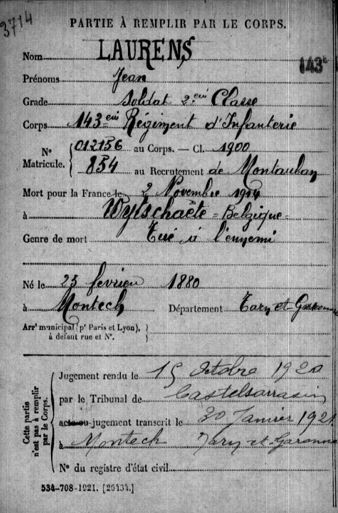 3714
PARTIE À REMPLIR PAR LE CORPS.
Nom LAURENS
143e
Prénoms Jean
Grade Soldat 2eme Classe
Corps 143em Régiment d'Infanterie
N° 012156 au Corps. — Cl. 1900
Matricule. 834 au Recrutement de Montauban
Mort pour la France le 2 Novembre 1914
à Wytschaëte = Belgique =
Genre de mort Tué à l'ennemi
Né le 23 fevrier 1880
à Montech Département Tarn-et-Garonne
Arrt municipal (pr Paris et Lyon),
à défaut rue et N°.
Cette partie
n'est pas à remplir
par le Corps.
Jugement rendu le 15 Octobre 1920
par le Tribunal de Castelsarrasin
acte ou jugement transcrit le 30 Janvier 1921
à Montech Tarn-et-Garonne
N° du registre d'état civil
534-708-1921. [26434.]